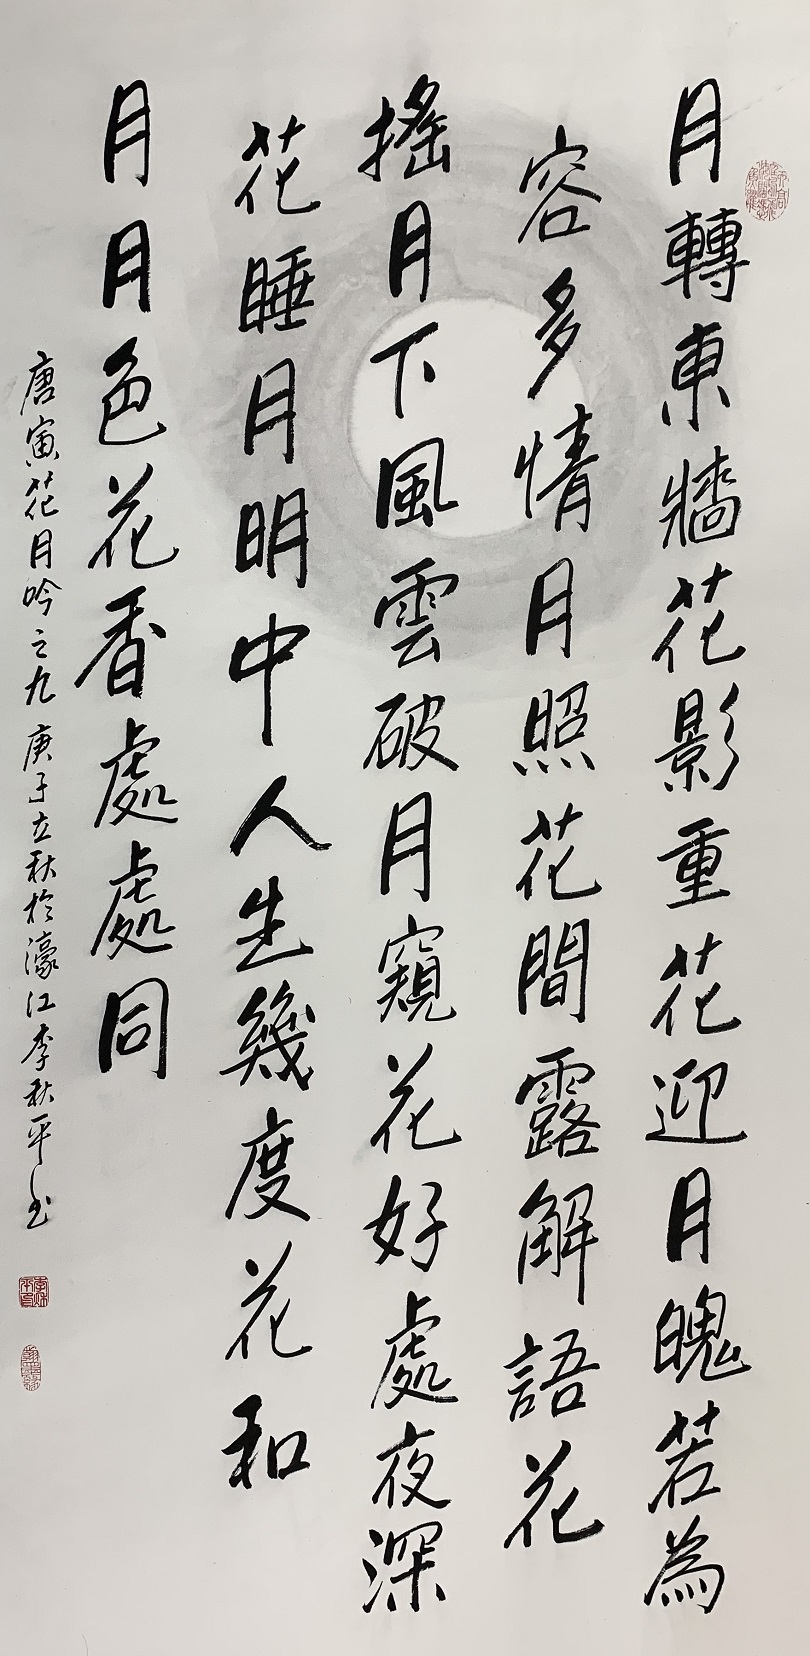 月轉東牆花影重花迎月魄若為
容多情月照花間露解語花
搖月下風雲破月窺花好處夜深
花睡月明中人生幾度花和
月月色花香處處同
唐寅花月吟之九 庚子立秋於濠江李秋平书